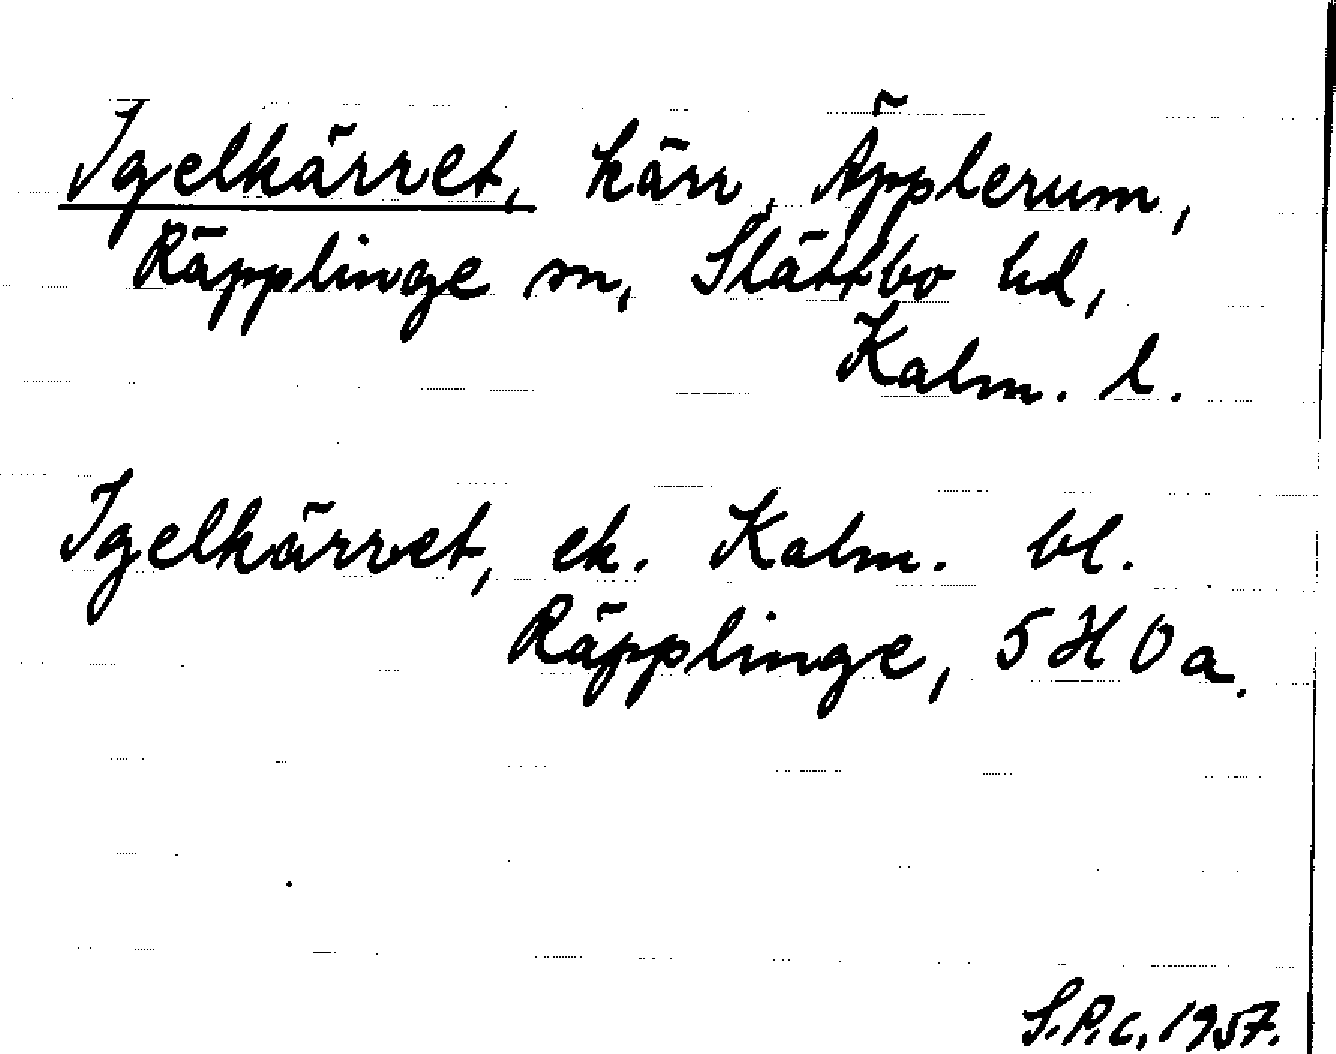 Igelkärret, kärr, Äpplerum,
Räpplinge sn, Slättbo hd,
Kalm. l.
Igelkärret, ek. Kalm. bl.
Räpplinge, 5 H O a.
S.P.C. 1957.